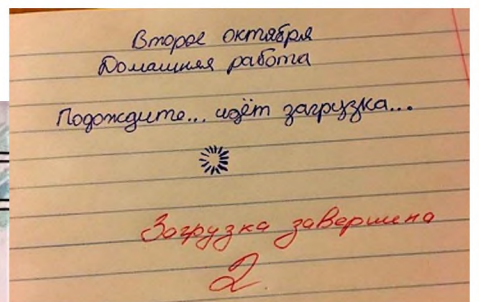 Второе октября
Домашняя работа
Подождите... идёт загрузка...
Загрузка завершена
2